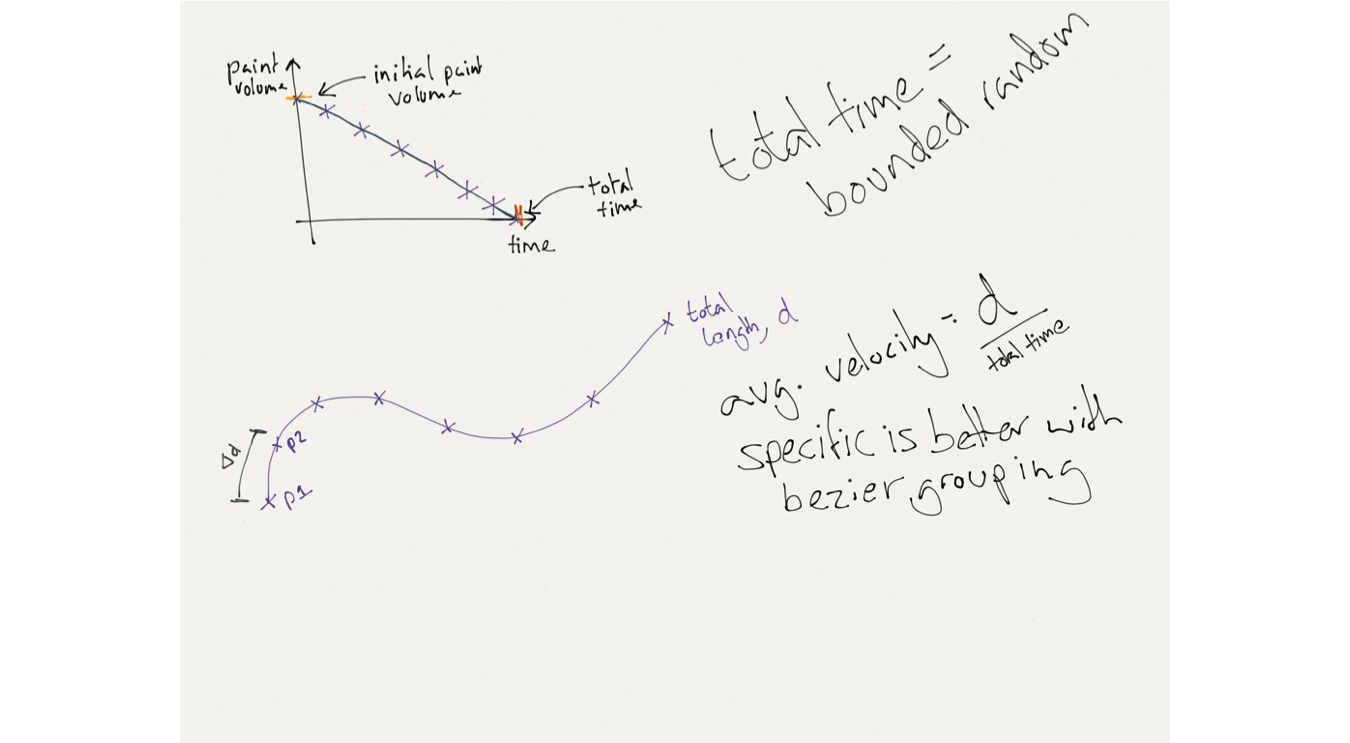 paint
volume
initial paint
volume
total
time
time
total time =
bounded random
total
length, d
avg. velocity = d
total time
specific is better with
bezier grouping
Δd
p2
p1